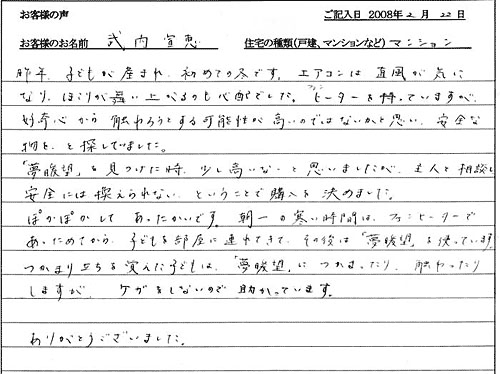 お客様の声 ご記入日 2008年2月22日
お客様のお名前 武内宣恵 住宅の種類(戸建、マンションなど) マンション
昨年、子どもが産まれ、初めての冬です。エアコンは直風が気に
なり、ほこりが舞い上がるのも心配でした。ファンヒーターを持っていますが、
好奇心から触わろうとする可能性が高いのではないかと思い、安全な
物を、と探していました。
「夢暖望」を見つけた時、少し高いな、と思いましたが、主人と相談し
安全には換えられない、ということで購入を決めました。
ぽかぽかして あったかいです。朝一の寒い時間は、ファンヒーターで
あっためてから、子どもを部屋に連れてきて、その後は「夢暖望」を使っています。
つかまり立ちを覚えた子どもは、「夢暖望」につかまったり、触わったり
しますが、ケガをしないので助かっています。
ありがとうございました。